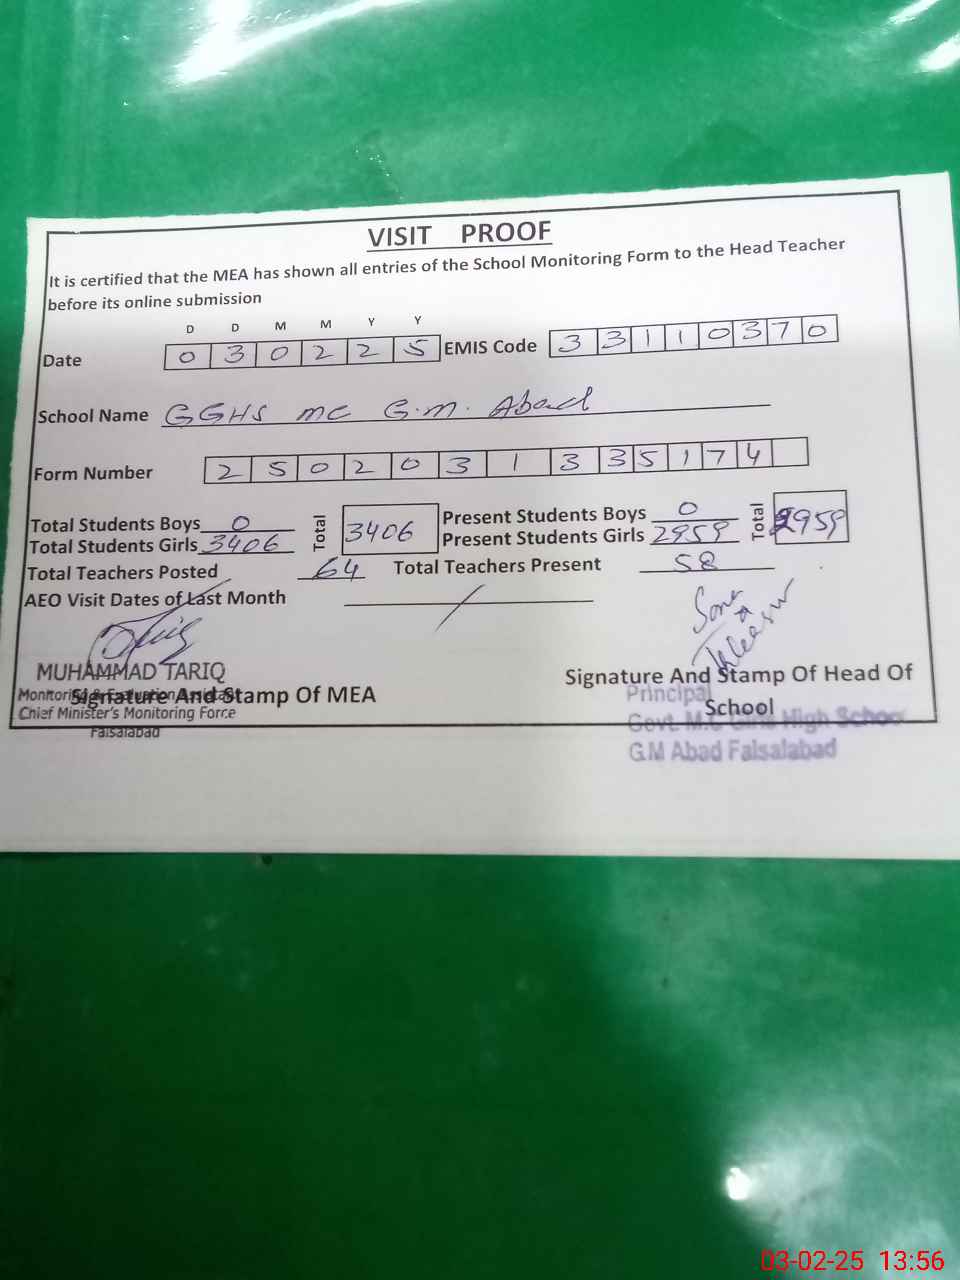 VISIT PROOF
It is certified that the MEA has shown all entries of the School Monitoring Form to the Head Teacher
before its online submission
D D M M Y Y
Date 0 3 0 2 2 5 EMIS Code 3 3 1 1 0 3 7 0
School Name GGHS MC G.M. Abad
Form Number 2 5 0 2 0 3 1 3 3 5 1 7 4
Total Students Boys 0 Total 3406 Present Students Boys 0 Total 2959
Total Students Girls 3406 Present Students Girls 2959
Total Teachers Posted 64 Total Teachers Present 58
AEO Visit Dates of Last Month
MUHAMMAD TARIQ
Monitoring & Evaluation Assistant
Signature And Stamp Of MEA
Chief Minister's Monitoring Force
Faisalabad
Signature And Stamp Of Head Of
School
Principal
Govt. M.C Girls High School
G.M Abad Faisalabad
03-02-25 13:56